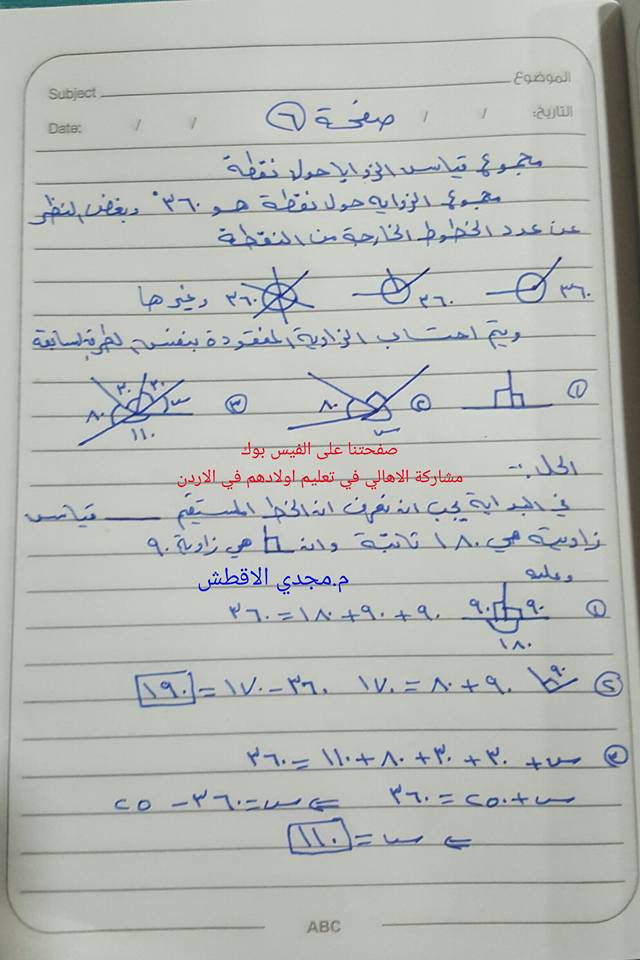 الموضوع Subject
التاريخ: / / / / Date:
صفحة ٦
مجموع قياس الزوايا حول نقطة
مجموع الزوايه حول نقطة هو ٣٦٠° وبغض النظر
عن عدد الخطوط الخارجة من النقطة
٣٦٠ ٣٦٠ ٣٦٠ وغيرها
ويتم احتساب الزاوية المفقودة بنفس الطريقة السابقة
١ ٢ ٨٠ س ٣ ٨٠ ٣٠ ٣٠ س ١١٠
صفحتنا على الفيس بوك
مشاركة الاهالي في تعليم اولادهم في الاردن
الحل :-
في البداية يجب ان نعرف ان الخط المستقيم ــــ قياس
زاويته هي ١٨٠ ثابتة وان هي زاوية ٩٠
م.مجدي الاقطش
وعليه
١ ٩٠ ٩٠ ١٨٠ ٩٠ + ٩٠ + ١٨٠ = ٣٦٠
٢ ٩٠ ٩٠ + ٨٠ = ١٧٠ ٣٦٠ - ١٧٠ = ١٩٠
٣ س + ٣٠ + ٣٠ + ٨٠ + ١١٠ = ٣٦٠
س + ٢٥٠ = ٣٦٠ ⇐ س = ٣٦٠ - ٢٥
⇐ س = ١١٠
ABC